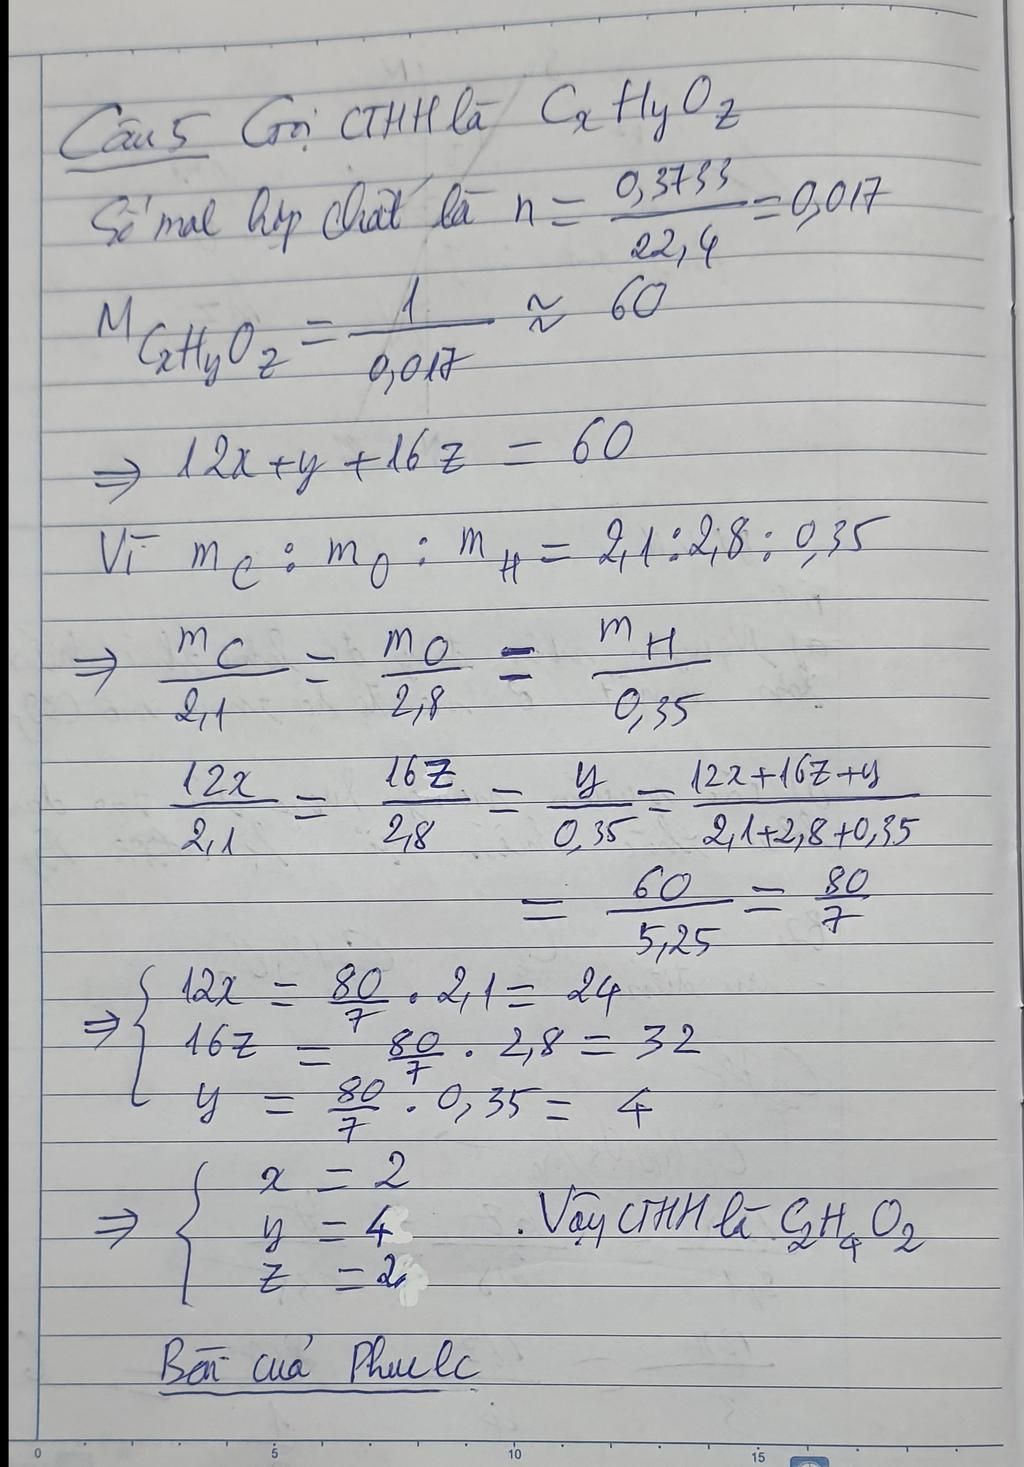 Câu 5 Gọi CTHH là CxHyOz
Số mol hợp chất là n = 0,3733/22,4 = 0,017
M CxHyOz = 1/0,017 ≈ 60
⇒ 12x + y + 16z = 60
Vì mC : mO : mH = 2,1 : 2,8 : 0,35
⇒ mC/2,1 = mO/2,8 = mH/0,35
12x/2,1 = 16z/2,8 = y/0,35 = 12x+16z+y/2,1+2,8+0,35
= 60/5,25 = 80/7
⇒ { 12x = 80/7 . 2,1 = 24
16z = 80/7 . 2,8 = 32
y = 80/7 . 0,35 = 4
⇒ { x = 2
y = 4 . Vậy CTHH là C2H4O2
z = 2
Bài của
0 5 10 15